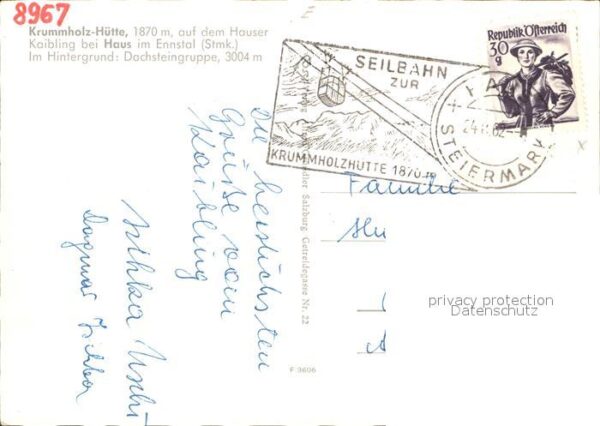 8967
Krummholz-Hütte, 1870 m, auf dem Hauser
Kaibling bei Haus im Ennstal (Stmk.)
Im Hintergrund: Dachsteingruppe, 3004 m
SEILBAHN
ZUR
KRUMMHOLZHÜTTE 1870 m
STEIERMARK
Republik Österreich
30
g
Die herzlichsten
Grüße vom
Kaibling
Uschi
Dagmar
Familie
Salzburg, Getreidegasse Nr. 22
F 3606
privacy protection
Datenschutz